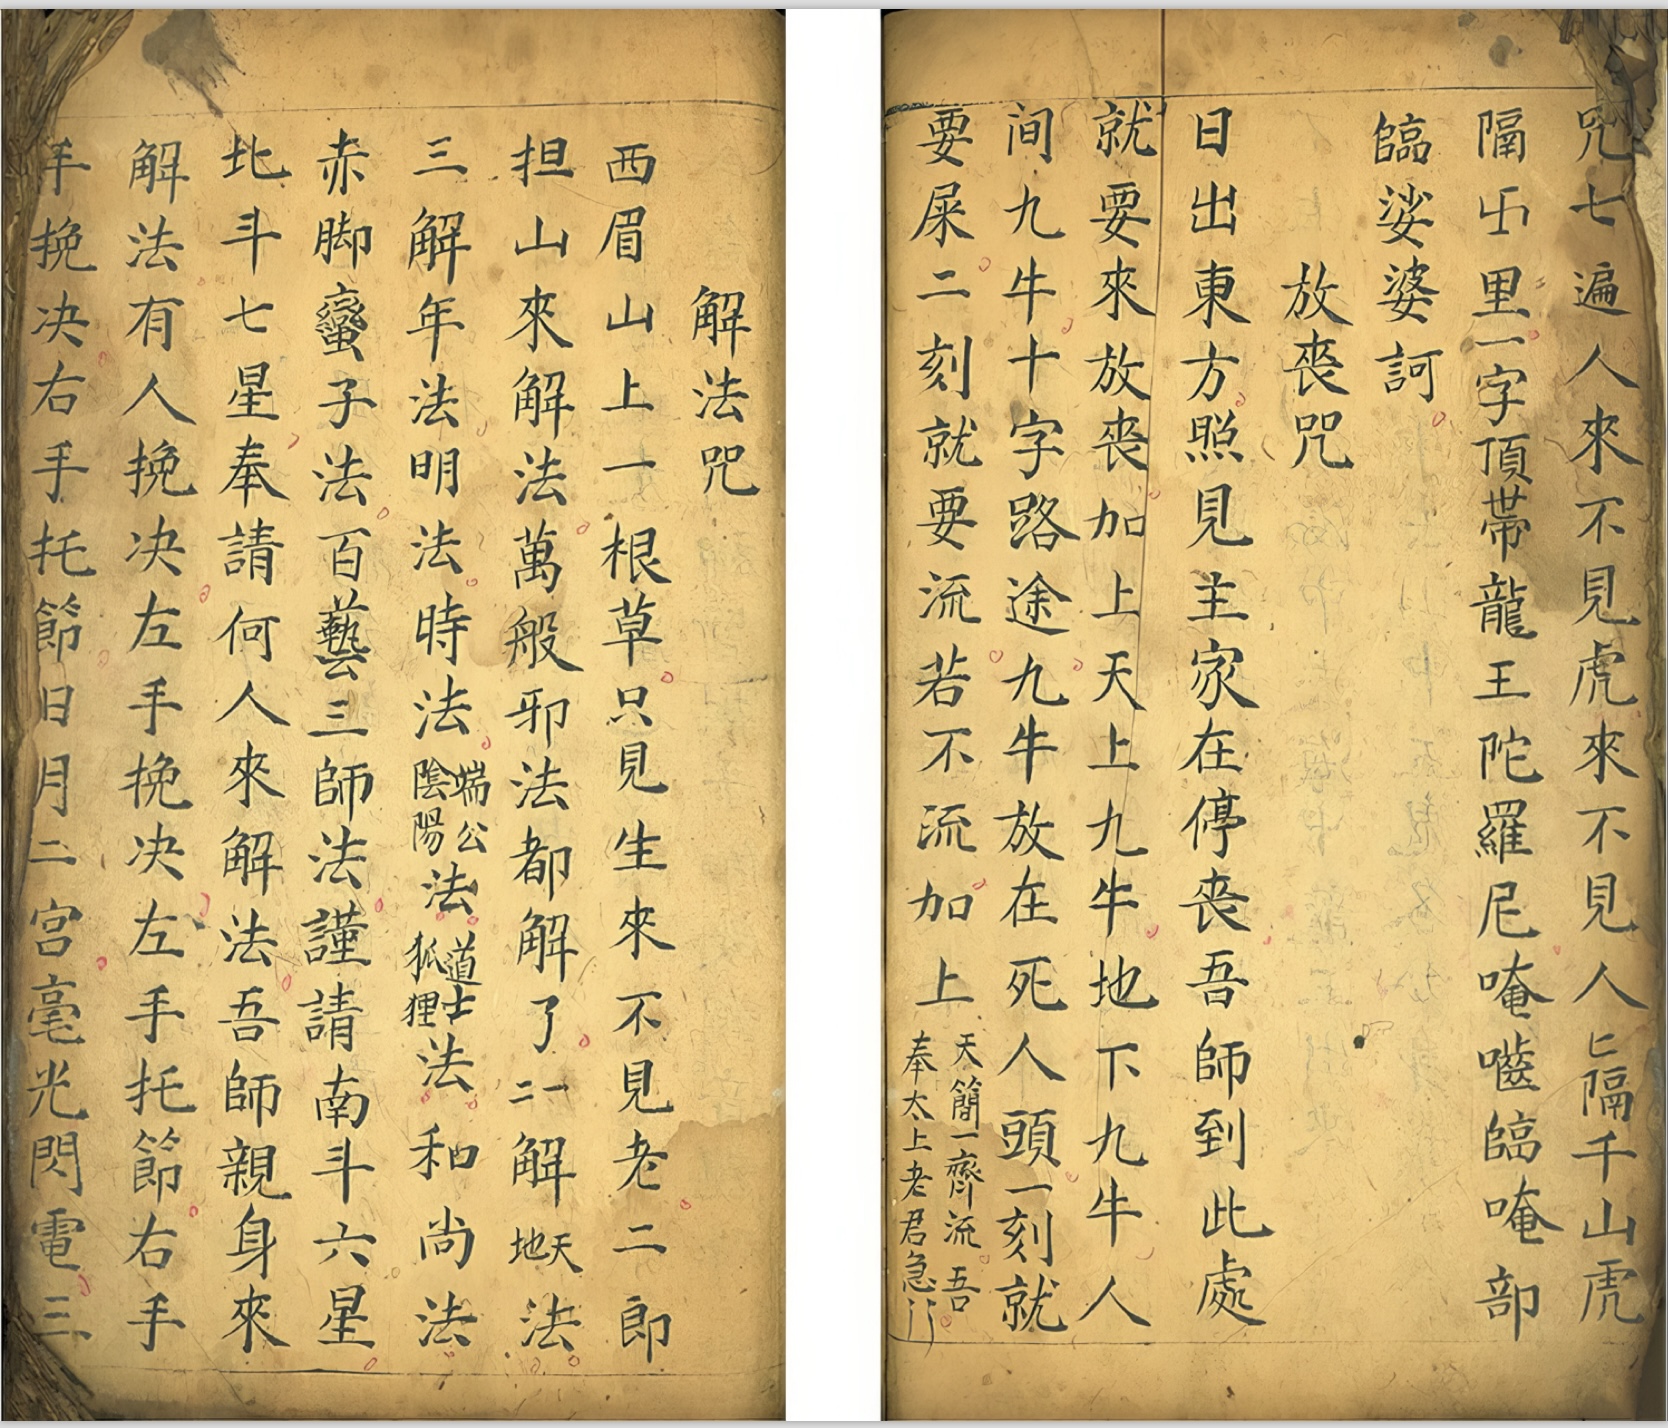 咒七遍人來不見虎來不見人𠤎隔千山虎
隔卐里一字頂帶龍王陀羅尼唵囓臨唵部
臨娑婆訶
放喪咒
日出東方照見主家在停喪吾師到此處
就要來放喪加上天上九牛地下九牛人
间九牛十字路途九牛放在死人頭一刻就
要屎二刻就要流若不流加上
天簡一齊流吾
奉太上老君急
解法咒
西眉山上一根草只見生來不見老二郎
担山來解法萬般邪法都解了一二解天地法
三解年法明法時法端公陰陽法道士狐狸法和尚法
赤脚蠻子法百藝三師法謹請南斗六星
北斗七星奉請何人來解法吾師親身來
解法有人挽决左手挽决左手托節右手
手挽决右手托節日月二宮毫光閃電三